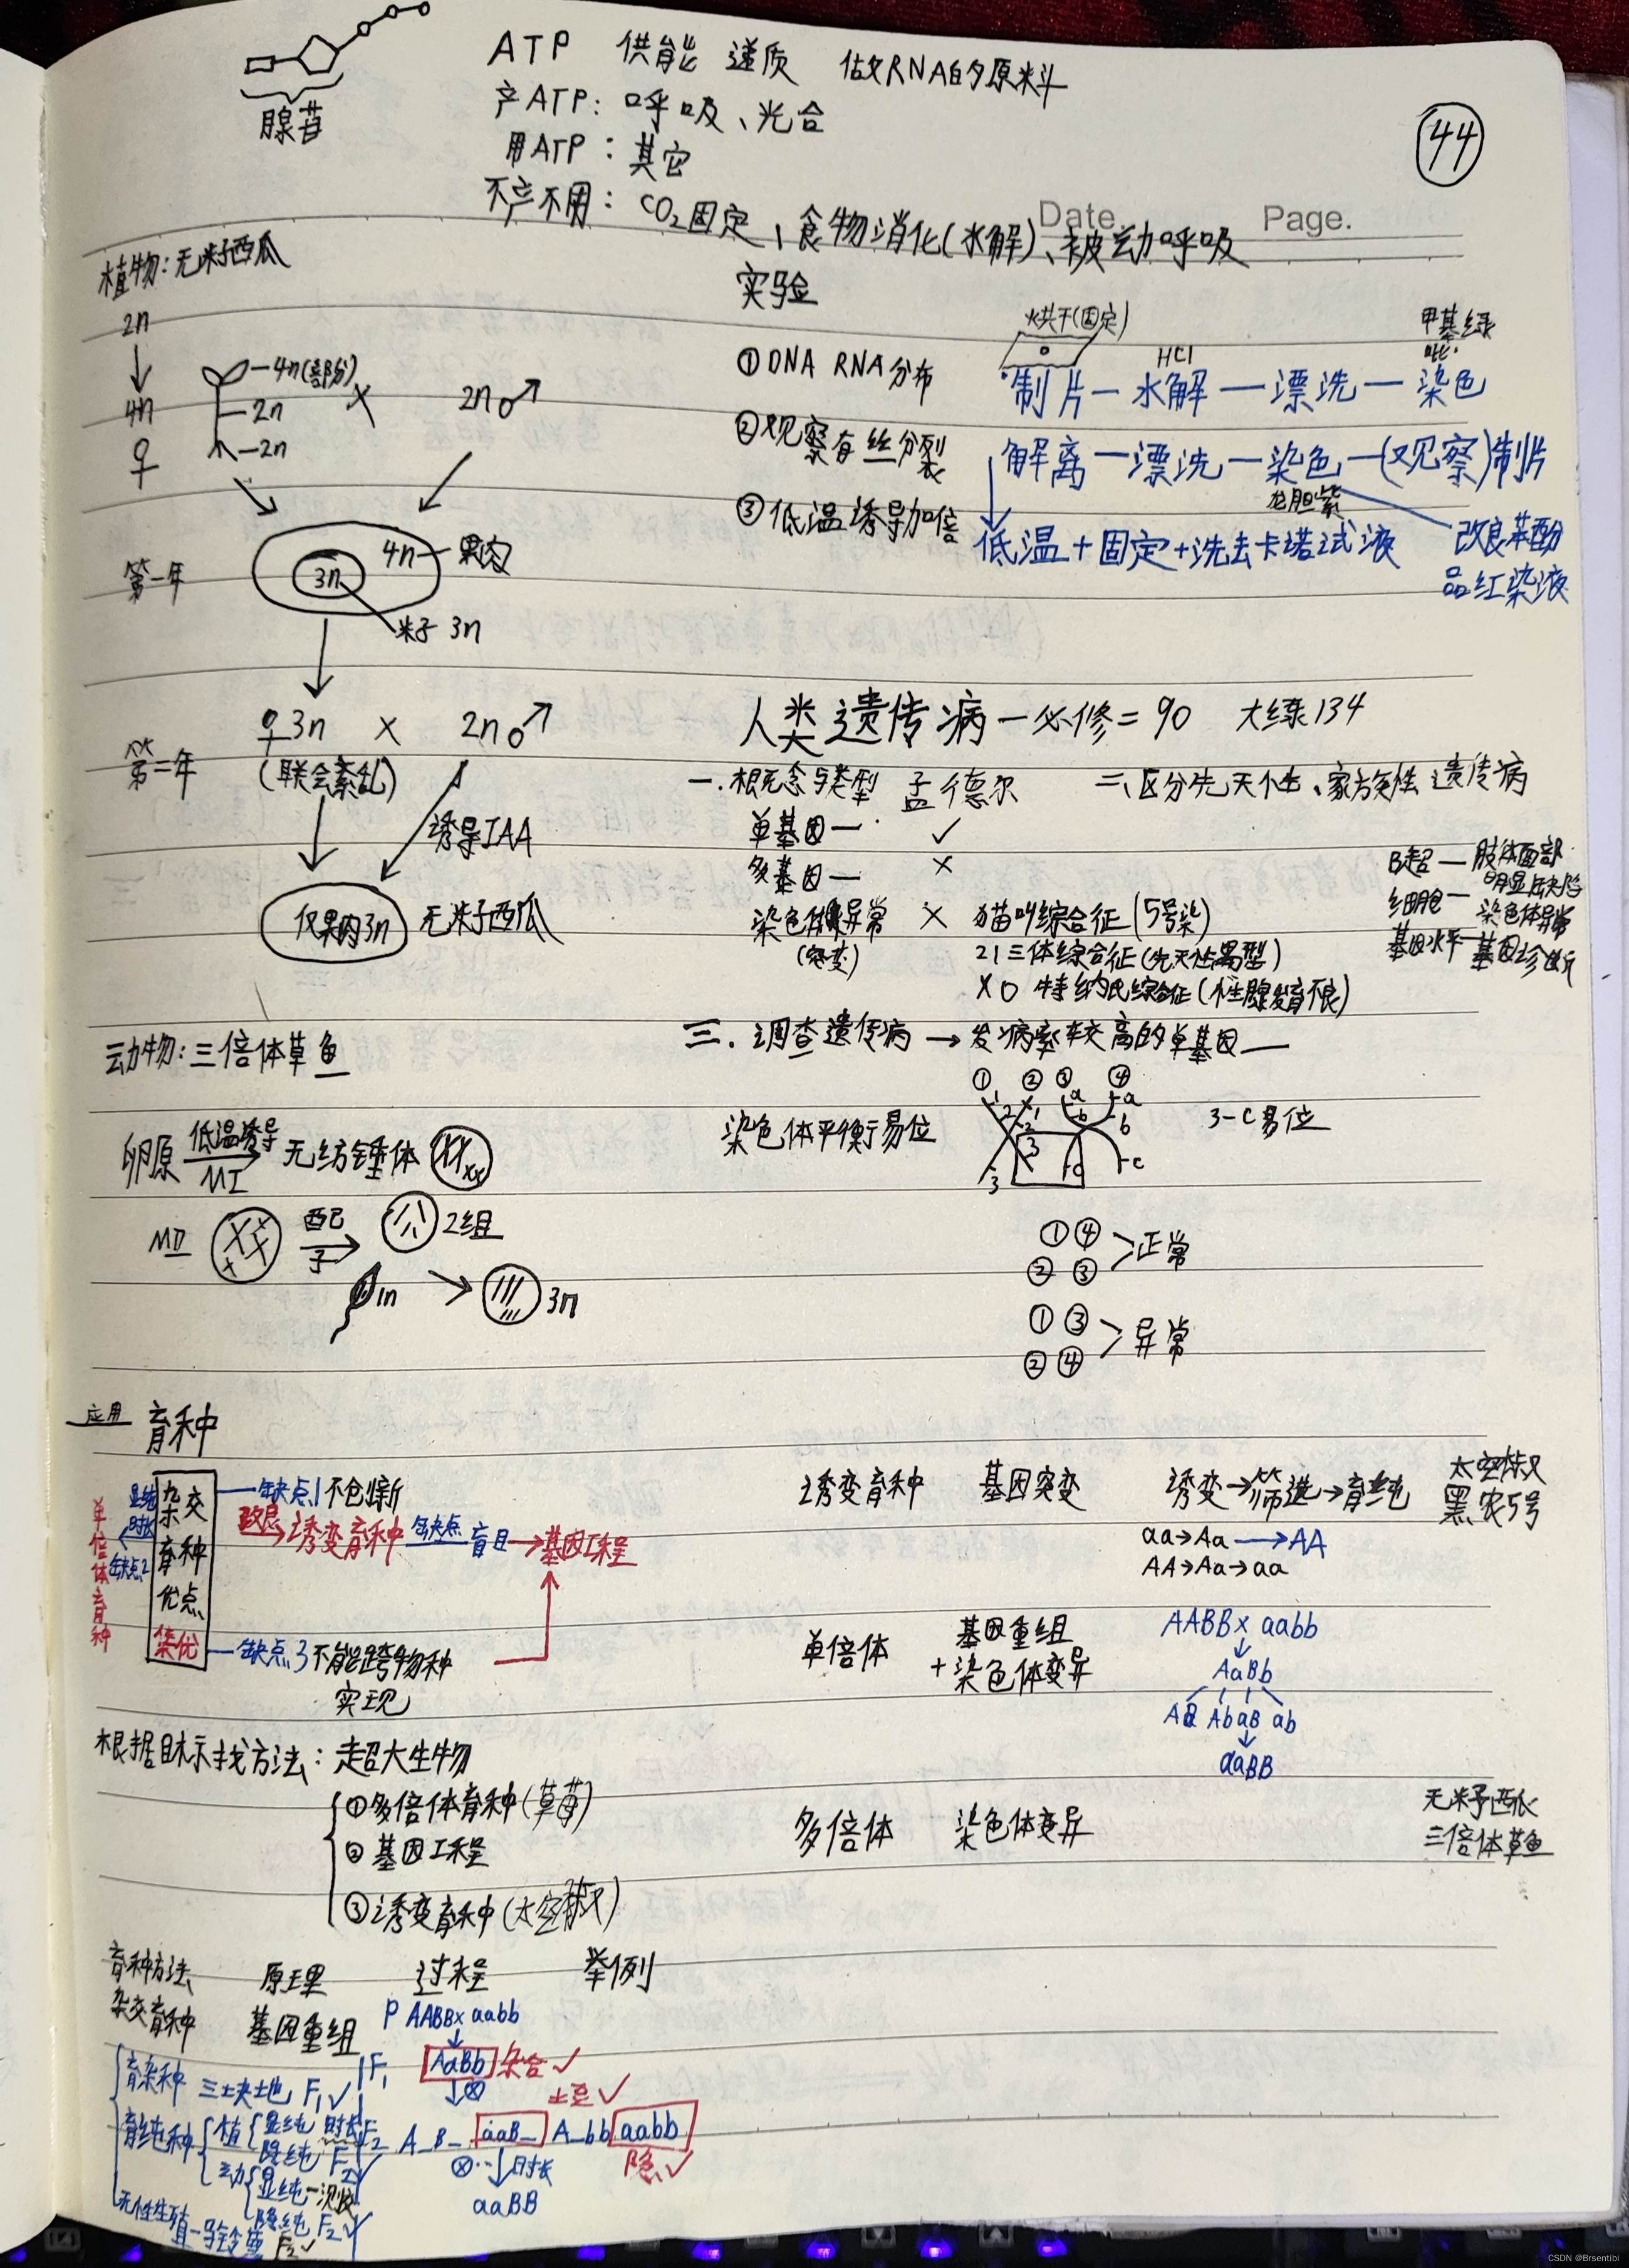 ATP 供能 递质 做RNA的原料
腺苷
产ATP：呼吸、光合
用ATP：其它
不产不用：CO₂固定、食物消化(水解)、被动呼吸
44
Date. Page.
植物：无籽西瓜
2n
4n
♀
4n(部分)
2n
2n
×
2n♂
第一年
3n
4n 果肉
籽子 3n
第二年
♀3n × 2n♂
(联会紊乱)
诱导IAA
仅果肉3n 无籽西瓜
动物：三倍体草鱼
卵原 低温诱导 无纺锤体
MI
MII 配子 2组
1n 3n
实验
①DNA RNA分布
烘干(固定) HCl 甲基绿
吡·
制片—水解—漂洗—染色
②观察有丝分裂
解离—漂洗—染色—(观察)制片
龙胆紫
③低温诱导加倍
低温+固定+洗去卡诺试液
改良苯酚
品红染液
人类遗传病—必修二90 大练134
一.概念与类型 孟德尔
二、区分先天性、家族性遗传病
单基因— ✓
多基因— ×
染色体异常 × 猫叫综合征(5号染)
(突变) 21三体综合征(先天性愚型)
XO 特纳氏综合征(性腺发育不良)
B超—肢体面部
明显缺陷
细胞—染色体异常
基因水平—基因诊断
三.调查遗传病→发病率较高的单基因—
染色体平衡易位
① ② ③ ④
1 2 3
1 2 3
a b c
a b c
3-C易位
①④
②③
>正常
①③
②④
>异常
应用 育种
杂交育种优点
集优
缺点1不创新
改良→诱变育种 缺点 盲目→基因工程
显纯
时长
缺点2
单倍体育种
缺点3不能跨物种
实现
根据目标找方法：超大生物
①多倍体育种(草莓)
②基因工程
③诱变育种(太空椒)
诱变育种 基因突变 诱变→筛选→育纯 太空椒
黑农5号
aa→Aa→AA
AA→Aa→aa
单倍体 基因重组
+染色体变异
AABB×aabb
AaBb
Ab aB ab
aaBB
多倍体 染色体变异 无籽西瓜
三倍体草鱼
育种方法 原理 过程 举例
杂交育种 基因重组 P AABB×aabb
F₁ AaBb 杂合✓
⊗
土豆✓
F₂ A_B_ aaB_ A_bb aabb
⊗ 时长 隐✓
aaBB
育杂种 F₁✓
育纯种
植 显纯 时长
隐纯 F₂✓
动 显纯—测交
隐纯 F₂✓
无性生殖—马铃薯
F₂✓
CSDN @Brsentibi